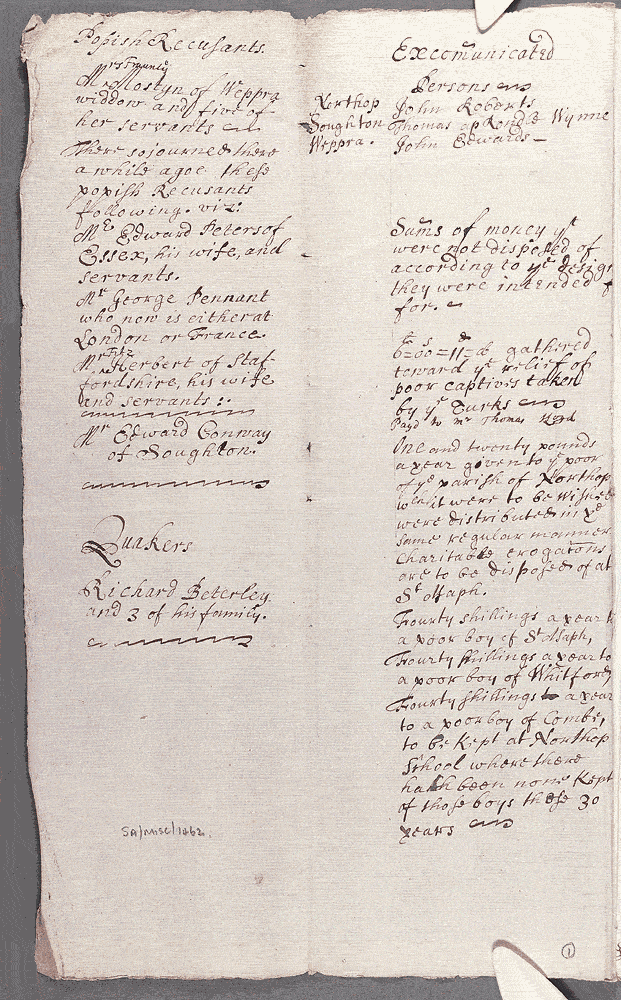 Popish Recusants.
Mrs
Mostyn of Weppra
widdow and five of
her servants
There sojourned there
a while agoe these
popish Recusants
following. viz:
Mr Edward Peters of
Essex, his wife, and
servants.
Mr George Pennant
who now is either at
London or France.
Mr Fitz
Herbert of Staf-
fordshire, his wife
and servants :.
Mr Edward Conway
of Soughton.
Quakers
Richard Beterley
and 3 of his family.
SA/MISC/1462.
Excomunicated
Persons
Northop John Roberts
Soughton Thomas ap Wynne
Weppra. John Edwards
Sums of money yt
were not disposed of
according to ye design
they were intended
for.
gathered
toward ye relief of
poor captives taken
by ye Turks
Payd to Mr Thomas
One and twenty pounds
a year given to ye poor
of ye parish of Northop
wch it were to be wished
were distributed in ye
same regular manner
Charitable erogations
are to be disposed of at
St Asaph.
Fourty shillings a year to
a poor boy of St Asaph,
Fourty shillings a year to
a poor boy of Whitford,
Fourty shillings a year
to a poor boy of Combe,
to be kept at Northop
School where there
hath been none kept
of those boys these 30
years
1